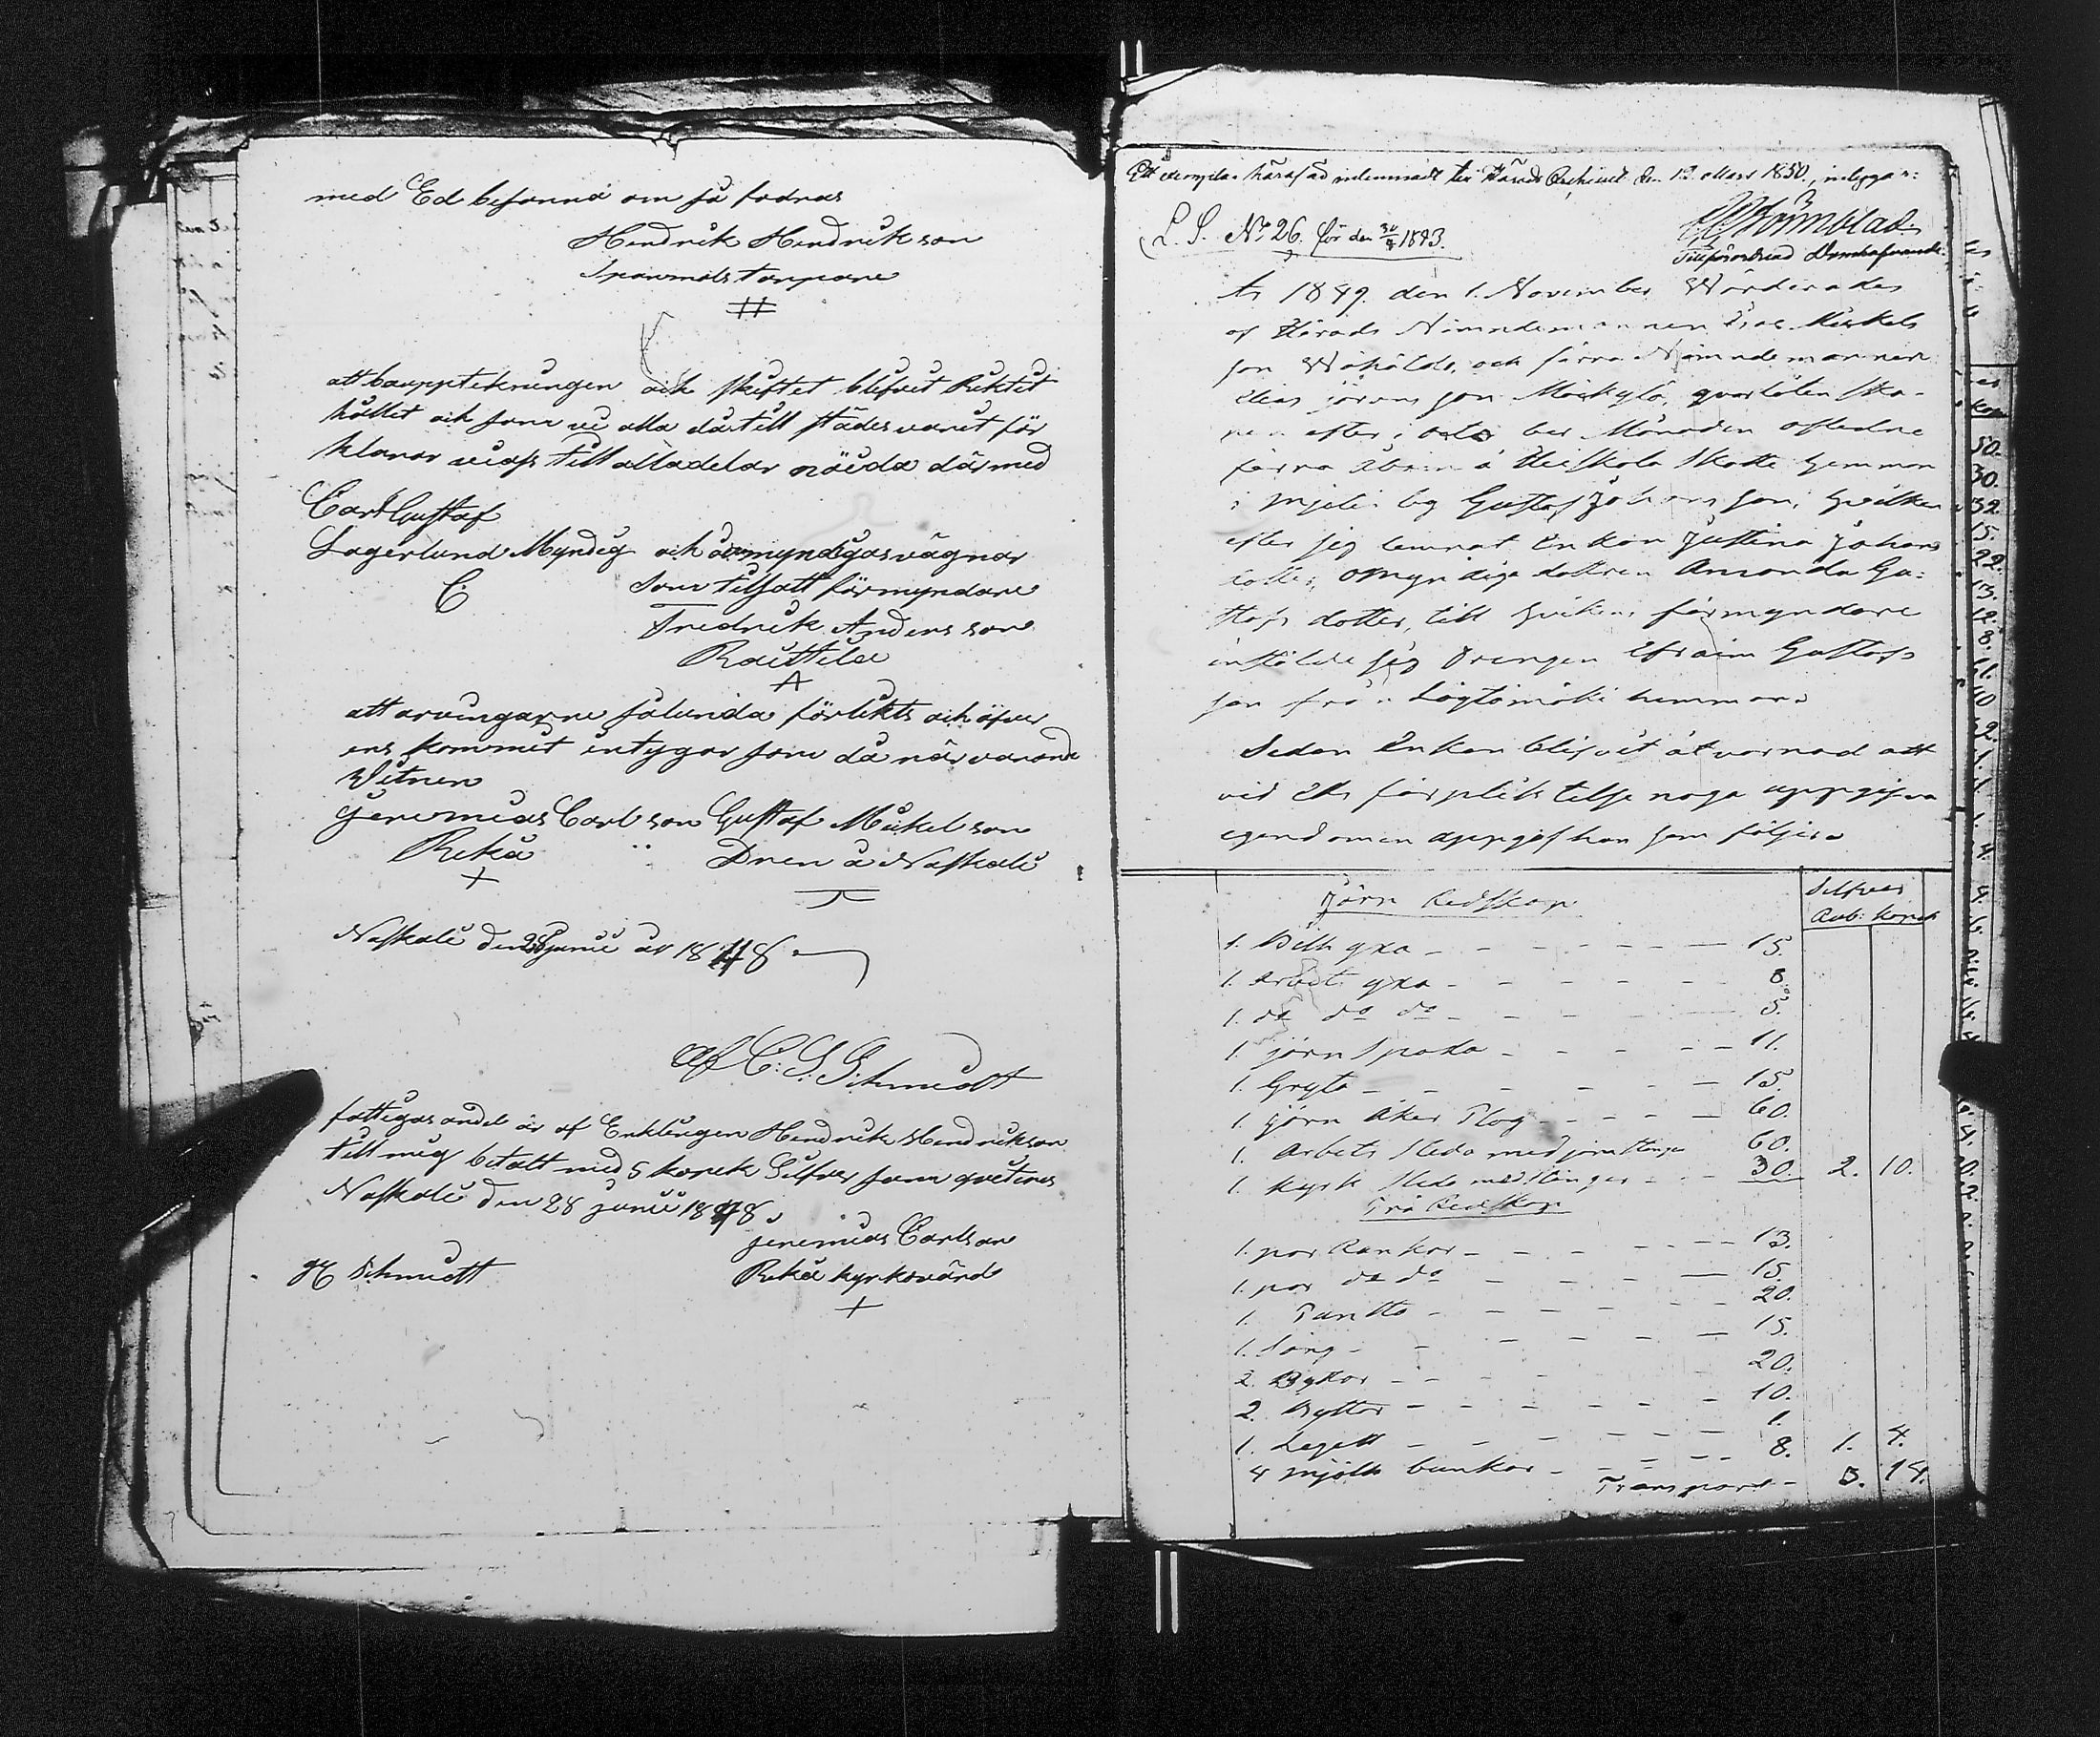 med Ed besanna om så fodras
Hendrik Hendrikson
Spanmåls torpare
#
att baupptekningen och skiftet blifvit Riktit
hållet och som vi alla där till städes varit för
klarar vi oss till alla delar nöida där med
Carl Gustaf
Lagerlund Myndig och å omyndigas vägnar
C som tilsatt förmyndare
Fredrik Anders son
Raittila
A
att arvingarne sålunda förlikts och öfver
ens kommit intygar som då närvarand
Vitnen
Jeremias Carlson Gustaf Mickelson
Rekä Dren å Naskali
+
Naskali den 28 junii år 1848
Af C: G. Schmidt
fattigas andel är af Enklingen Hendrik Hendrikson
till mig betalt med 5 kopek Silfver som qvitteras
Naskali den 28 junii 1848
Jeremias Carlson
H Schmidt Rekä kyrkovärd
+
Ett exemplar häraf är inlemnadt till Härads Archivet den 12 Mars 1850, intygar:
Strömblad
Tillförordnad Domhafvande
L. S. No 26. för den 30/4 1843.
År 1849 den 1. November Värderades
af Härads Nämndemannen Isac Mickels
son Wähälä, och förra Nämndemannen
Elias Jörans son Mäckylä, qvarlåten ska-
pen efter i october Månaden afledne
förra Åbon å Heiskala Skatte hemman
i by Gustaf Johans son, hvilken
efter sig lemnat Enkan Justina Johans
dotter, omyndiga dottren Amanda Gu-
stafs dotter, till hvilkens förmyndare
instälde sig Drengen Efraim Gustafs
son från hemman
Sedan Enkan blifvit åtvarnad att
vid Eds förpliktelse noga uppgifva
egendomen uppgaf hon som följer
Silfver
Jern Redskap Rub: kopek
1. Bill yxa - 15.
1. Arbets yxa - 8.
1. do do do - 5.
1. jern spada - 11.
1. Gryta - 15.
1. jern åker Plog - 60.
1. Arbets släda med jern stänger 60.
1. Kyrk släda med stänger - 30. 2. 10.
Trä Redskap
1. par Rankor - 13.
1. par do do - 15.
1. - 20.
1. Säng - 15.
2. Bykar - 20.
2. Byttor - 10.
1. - 1.
4 mjölk bunkar - 8. 1. 4.
Transport - 3. 14.